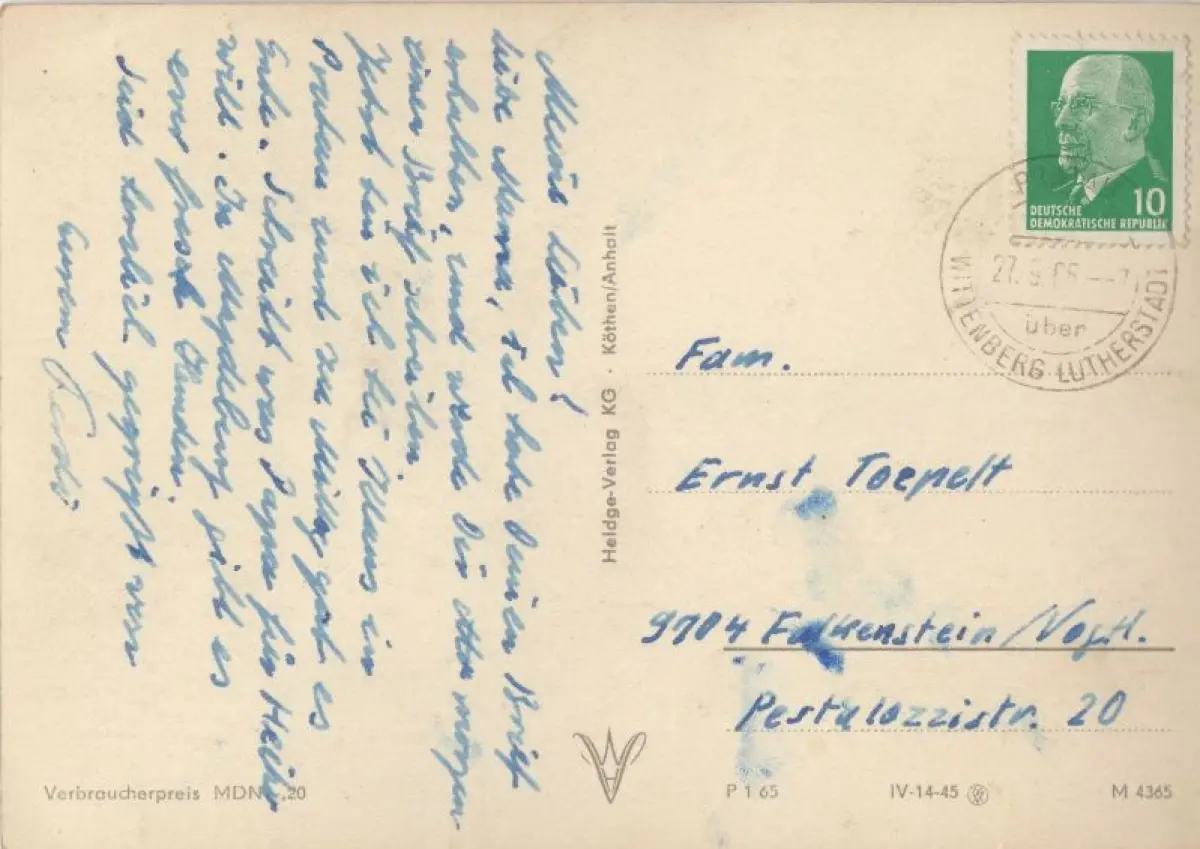 Meine Lieben!
Liebe Mama, ich habe Deinen Brief
erhalten, und werde Dir
einen Brief schreiben.
Jetzt bin ich bei Klaus in
und zu Mittag gab es
Ente. Schreibt was für
will. In Magdeburg gibt es
Seid herzlich gegrüßt von
Eurem
Heldge-Verlag KG · Köthen/Anhalt
10
DEUTSCHE
DEMOKRATISCHE REPUBLIK
über
WITTENBERG LUTHERSTADT
Fam.
Ernst Toepelt
9704 Falkenstein/Vogtl.
Pestalozzistr. 20
Verbraucherpreis MDN -,20
P 1 65 IV-14-45 M 4365